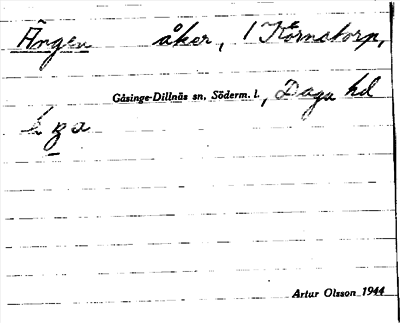 Ängen åker, 1 Körnatorp,
Gåsinge-Dillnäs sn, Söderm. l., Daga hd
Artur Olsson 1944